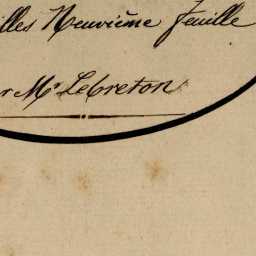 illes Neuvième feuille
r Mr Lebreton